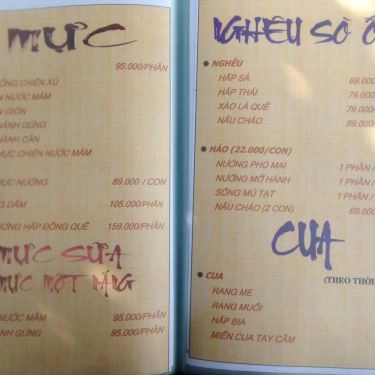 MỰC
95.000/PHẦN
ỐNG CHIÊN XÙ
NƯỚC MẮM
GIÒN
HÀNH GỪNG
HÀNH CẦN
MỰC CHIÊN NƯỚC MẮM
MỰC NƯỚNG 89.000 / CON
DẤM 105.000/PHẦN
HẤP ĐÔNG QUÊ 159.000/PHẦN
MỰC SỮA
MỰC MỘT NẮNG
NƯỚC MẮM 95.000/PHẦN
GỪNG 95.000/PHẦN
NGHÊU SÒ Ố
• NGHÊU
HẤP SẢ 69.000
HẤP THÁI 79.000
XÀO LÁ QUẾ 79.000/
NẤU CHÁO 89.000/
• HÀO (22.000/CON)
NƯỚNG PHO MAI 1 PHẦN /
NƯỚNG MỠ HÀNH 1 PHẦN /
SỐNG MÙ TẠT 1 PHẦN /
NẤU CHÁO (2 CON) 69.000
CUA
(THEO THỜI
• CUA
RANG ME
RANG MUỐI
HẤP BIA
MIẾN CUA TAY CẦM